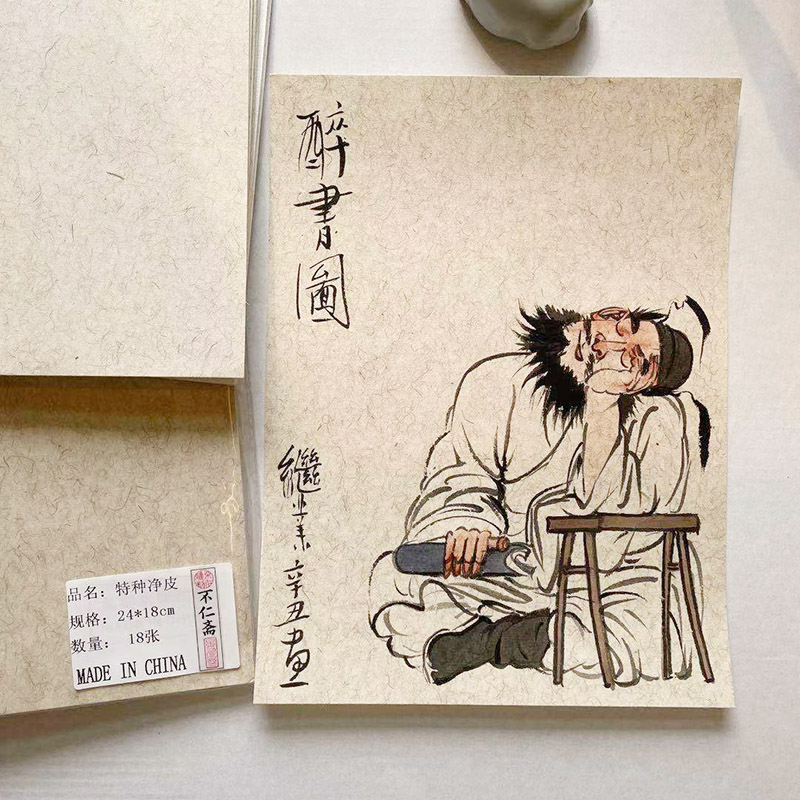 醉書圖
繼业美辛丑画
品名：特种净皮
规格：24*18cm
数量： 18张
MADE IN CHINA
不仁斋